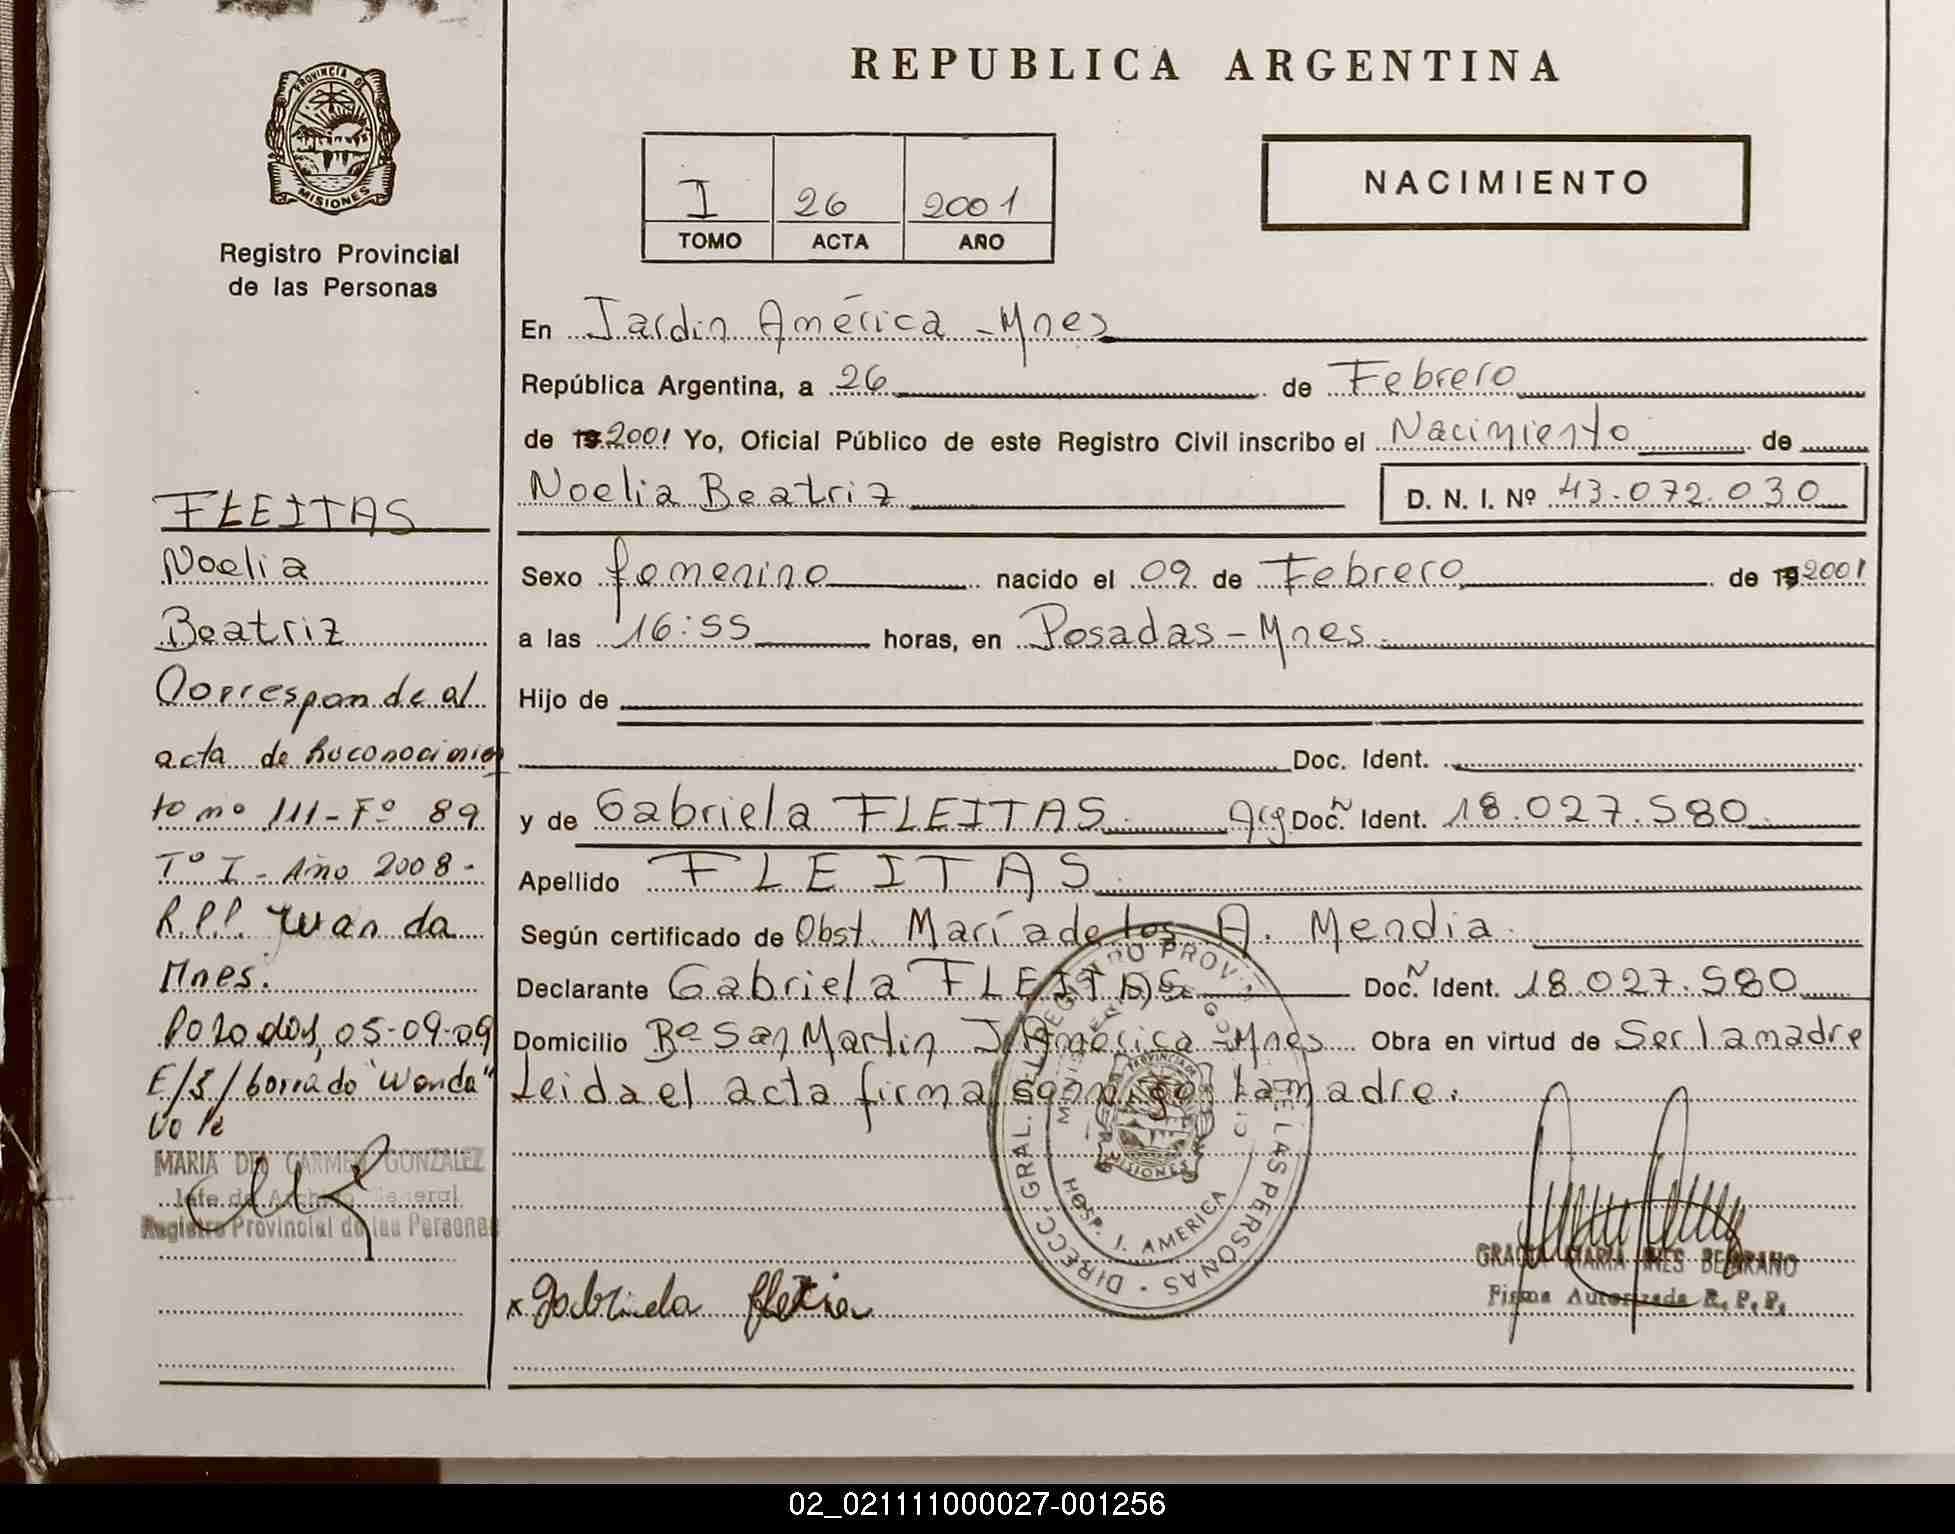 REPUBLICA ARGENTINA
PROVINCIA DE MISIONES
Registro Provincial
de las Personas
I 26 2001
TOMO ACTA AÑO
NACIMIENTO
En Jardin América - Mnes
República Argentina, a 26 de Febrero
de 19 2001 Yo, Oficial Público de este Registro Civil inscribo el Nacimiento de
Noelia Beatriz D. N. I. Nº 43.072.030
Sexo femenino nacido el 09 de Febrero de 19 2001
a las 16:55 horas, en Posadas - Mnes.
Hijo de
Doc. Ident.
y de Gabriela FLEITAS. Arg Doc. N Ident. 18.027.580
Apellido FLEITAS.
Según certificado de Obst. María de los A. Mendia.
Declarante Gabriela FLEITAS Doc. N Ident. 18.027.580
Domicilio Bº San Martin J. América - Mnes Obra en virtud de Ser la madre
Leida el acta firma conmigo La madre.
FLEITAS
Noelia
Beatriz
Corresponde al
acta de Reconocimien
to nº 111 - Fº 89
Tº I - Año 2008 -
R.P.P. Wanda
Mnes.
Posadas, 05-09-09
E/S/borrado "Wanda"
Vale
MARIA DEL CARMEN GONZALEZ
Jefe de Archivo General
Registro Provincial de las Personas
x Gabriela fleitas
DIRECC. GRAL. DEL REGISTRO PROVINCIAL DE LAS PERSONAS
HOSP. J. AMERICA
PROVINCIA DE MISIONES
MARIA INES BEJARANO
Firma Autorizada R. P. P.
02_021111000027-001256